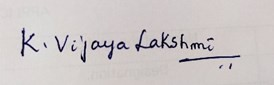 K. Vijaya Lakshmi